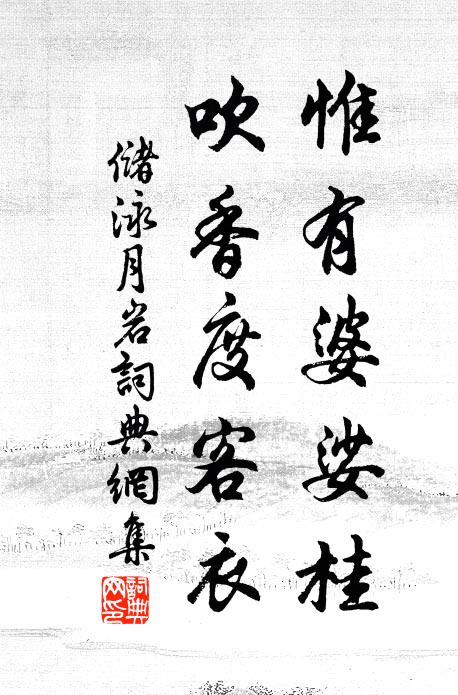 惟有婆娑桂
吹香度客衣
儲泳月岩詞典網集
詞典網印